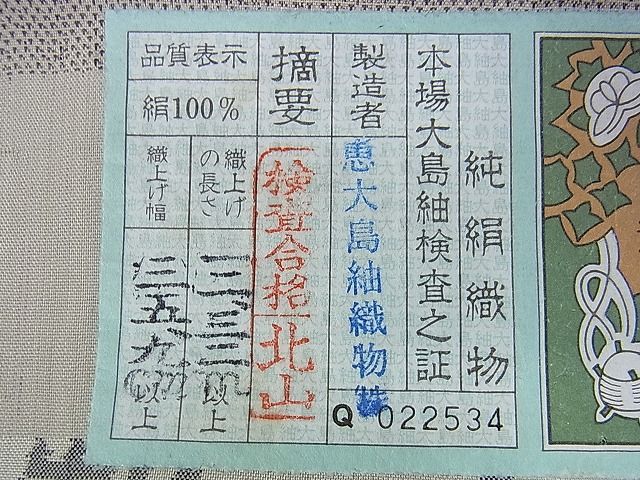 純絹織物
本場大島紬検査之証
製造者
恵大島紬織物㈱
Q 022534
摘要
検査合格
北山
品質表示
絹100%
織上げの長さ
以上
織上げ幅
三五、九
以上